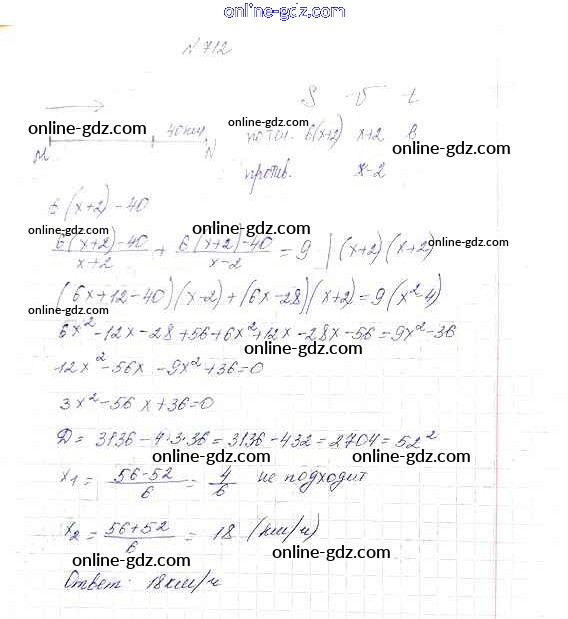 online-gdz.com
N 712
S V t
40 км
online-gdz.com
по теч. 6(x+2) x+2 6
online-gdz.com
M N
против. x-2
6(x+2)-40
online-gdz.com
online-gdz.com
online-gdz.com
6(x+2)-40/x+2 + 6(x+2)-40/x-2 = 9 | (x+2)(x+2)
(6x+12-40)(x-2)+(6x-28)(x+2)=9(x²-4)
online-gdz.com
online-gdz.com
6x²-12x-28+56+6x²+12x-28x-56=9x²-36
online-gdz.com
12x²-56x-9x²+36=0
3x²-56x+36=0
D=3136-4·3·36=3136-432=2704=52²
online-gdz.com
online-gdz.com
x1=56-52/6=4/6 не подходит
x2=56+52/6=18 (км/ч)
online-gdz.com
online-gdz.com
Ответ: 18км/ч
online-gdz.com